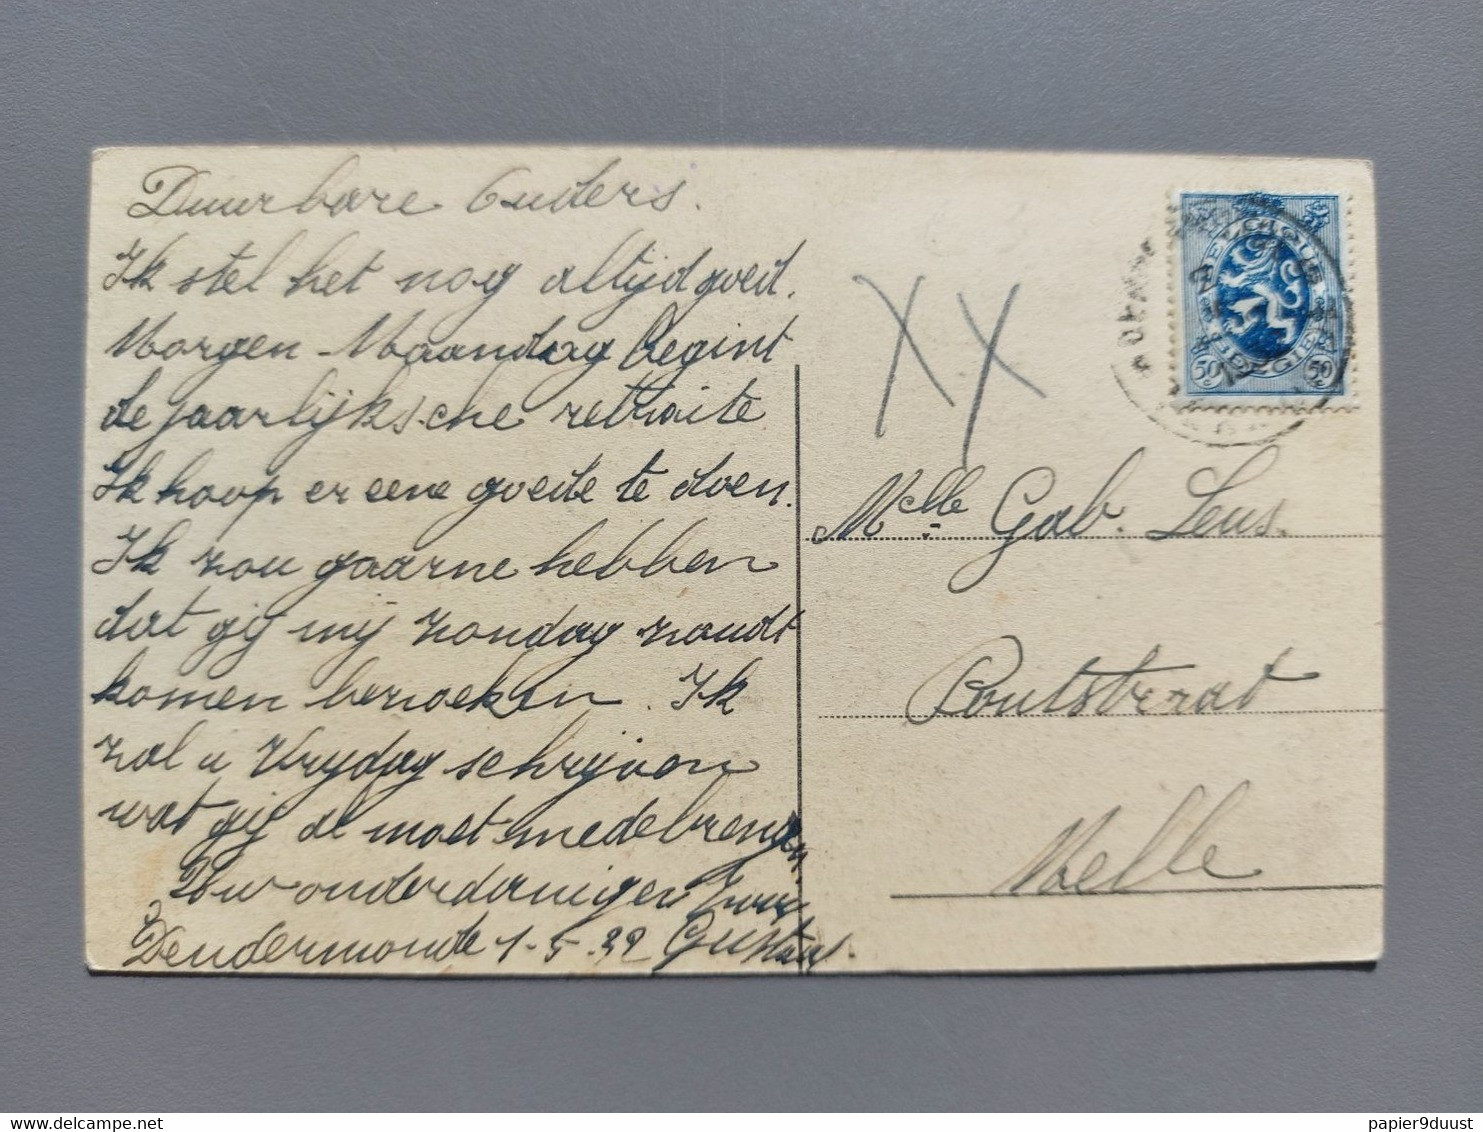 Duurbare Ouders.
Ik stel het nog altijd goed.
Morgen Maandag begint
de jaarlijksche retraite
Ik hoop er eene goede te doen.
Ik zou gaarne hebben
dat gij mij zondag zoudt
komen bezoeken. Ik
zal u Vrijdag schrijven
wat gij al moet medebrengen
Uw onderdanigen zoon
Dendermonde 1-5-32 Gustaaf.
XX
BELGIQUE
BELGIE
50c 50c
Melle Gab. Lens.
Melle
delcampe.net
papier9duust